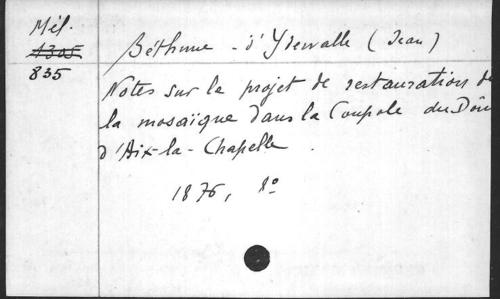 Mél.
1305
835
Béthune - d'Ydewalle (Jean)
Notes sur le projet de restauration de
la mosaïque dans la Coupole du Dôm
d'Aix-la-Chapelle.
1876, 8º